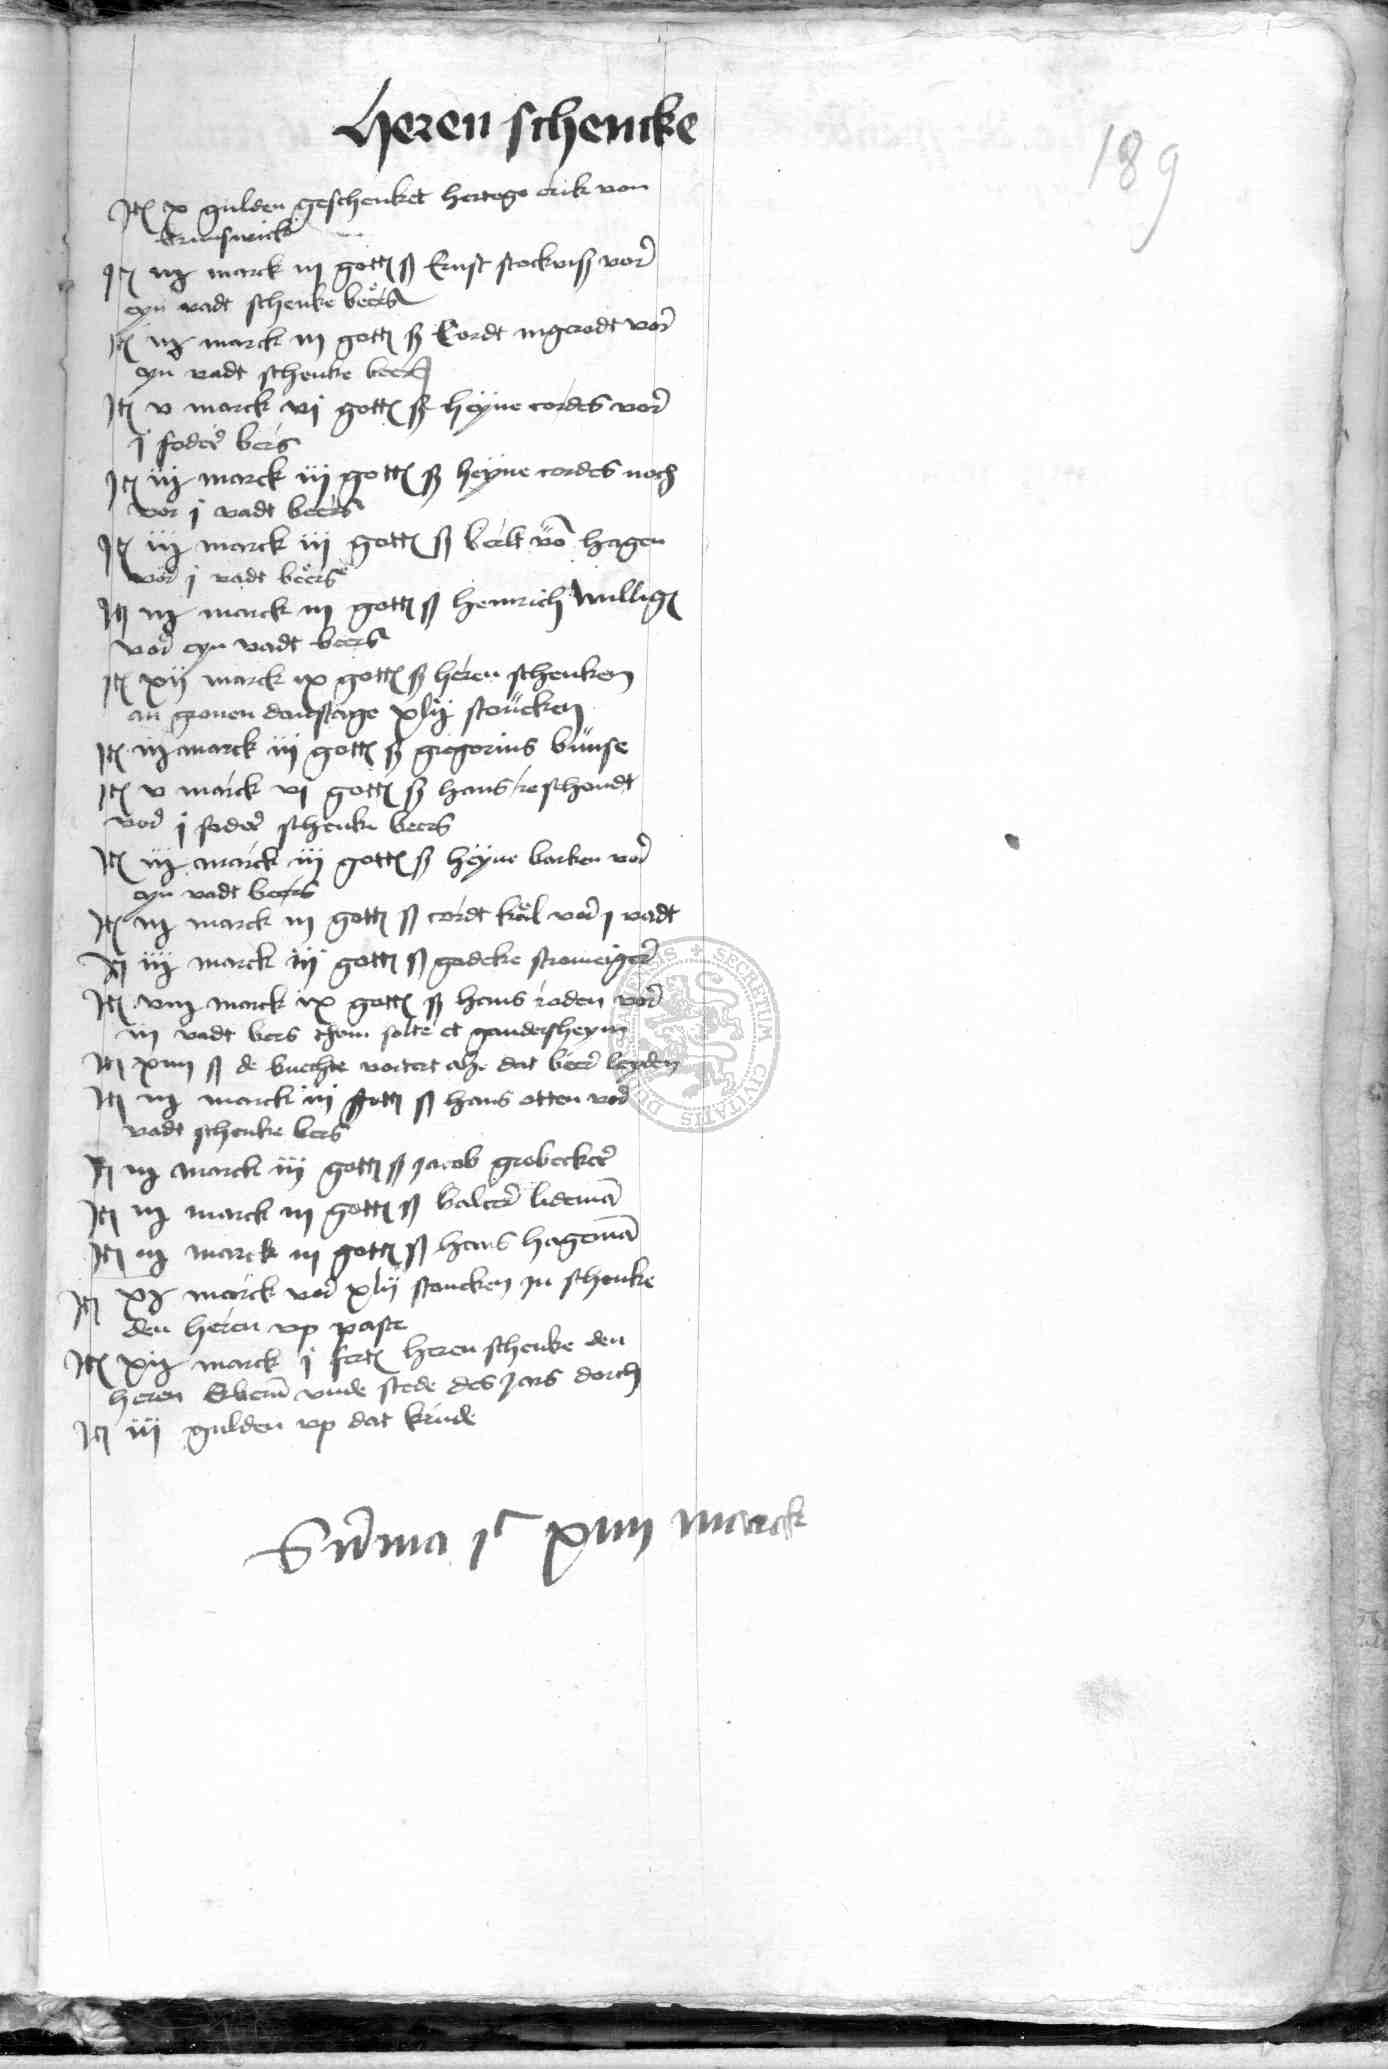 Heren schencke
189
Itē x gulden geschenket hertoge erik von
brunswick
Itē iij marck iij gott ß Ernst stockviß vor
eyn vadt schenke beers
Itē iij marck iij gott ß Cordt ingerodt vor
eyn vadt schenke beers
Itē v marck vj gott ß heyne cordes vor
j foder bers
Itē iij marck iij gott ß heyne cordes noch
vor j vadt beers
Itē iij marck iij gott ß bertt vō hagen
vor j vadt beers
Itē iij marck iij gott ß heinrich willig
vor eyn vadt beers
Itē xij marck ix gott ß heren schenken
an gronen donrstage xlij stoucken
Itē iij marck iij gott ß gregorius bunse
Itē v marck vj gott ß hans reschondt
vor j foder schenke beers
Itē iij marck iij gott ß heyne barken vor
eyn vadt beers
Itē iij marck iij gott ß cordt kael vor j vadt
Itē iij marck iij gott ß godeke stromeiger
Itē viij marck ix gott ß hans roden vor
iij vadt bers thom solte et gandersheym
Itē xiiij ß de knechte vortert alße dat beer leyden
Itē iij marck iij gott ß hans otten vor
vadt schenke bers
Itē iij marck iij gott ß jacob grobecker
Itē iij marck iij gott ß balcer lidemā
Itē iij marck iij gott ß hans hagemā
Itē marck vor xlij stoucken in schenke
den heren vp paste
Itē xij marck j fert heren schenke den
heren vnde stede des jars dorch
Itē iij gulden vp dat krude
Sūma jc xiiij marck
SECRETUM CIVITATIS